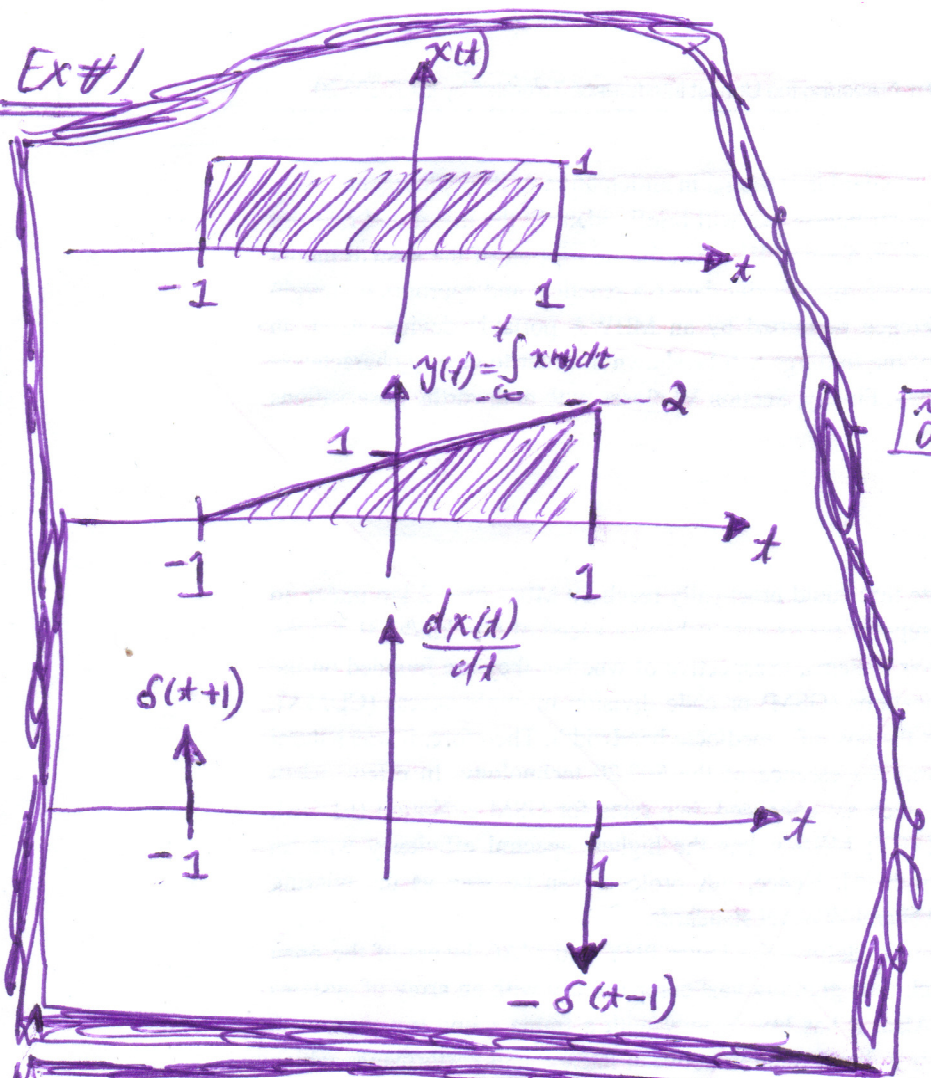 Ex#1
x(t)
1
-1 1 t
y(t)=∫_{-∞}^{t} x(t)dt
2
1
-1 1 t
dx(t)/dt
δ(t+1)
-1 1 t
-δ(t-1)